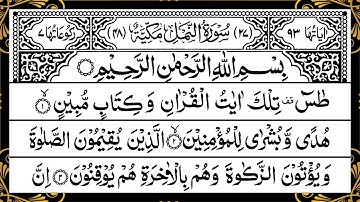 اٰيَاتُهَا ٩٣ (٢٧) سُوْرَةُ النَّمْلِ مَكِّيَّةٌ (٤٨) رُكُوْعَاتُهَا ٧
بِسْمِ اللّٰهِ الرَّحْمٰنِ الرَّحِيْمِ
طٰسٓ ۫ تِلْكَ اٰيٰتُ الْقُرْاٰنِ وَ كِتَابٍ مُّبِيْنٍ ۝١
هُدًى وَّ بُشْرٰى لِلْمُؤْمِنِيْنَ ۝٢ الَّذِيْنَ يُقِيْمُوْنَ الصَّلٰوةَ
وَ يُؤْتُوْنَ الزَّكٰوةَ وَ هُمْ بِالْاٰخِرَةِ هُمْ يُوْقِنُوْنَ ۝٣ اِنَّ